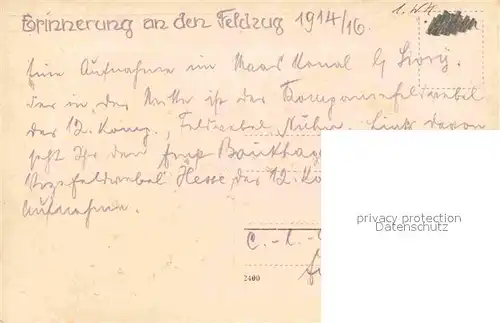 Erinnerung an den Feldzug 1914/16.
1. WK
Eine Aufnahme im Maas Kanal b/
Der in der Mitte ist der Kompaniefeldwebel
der 12. Komp., Feldwebel Links davon
seht Ihr den
Vizefeldwebel Hesse, der 12. Ko
Aufnahme.
privacy protection
Datenschutz
C.-L.-
2400